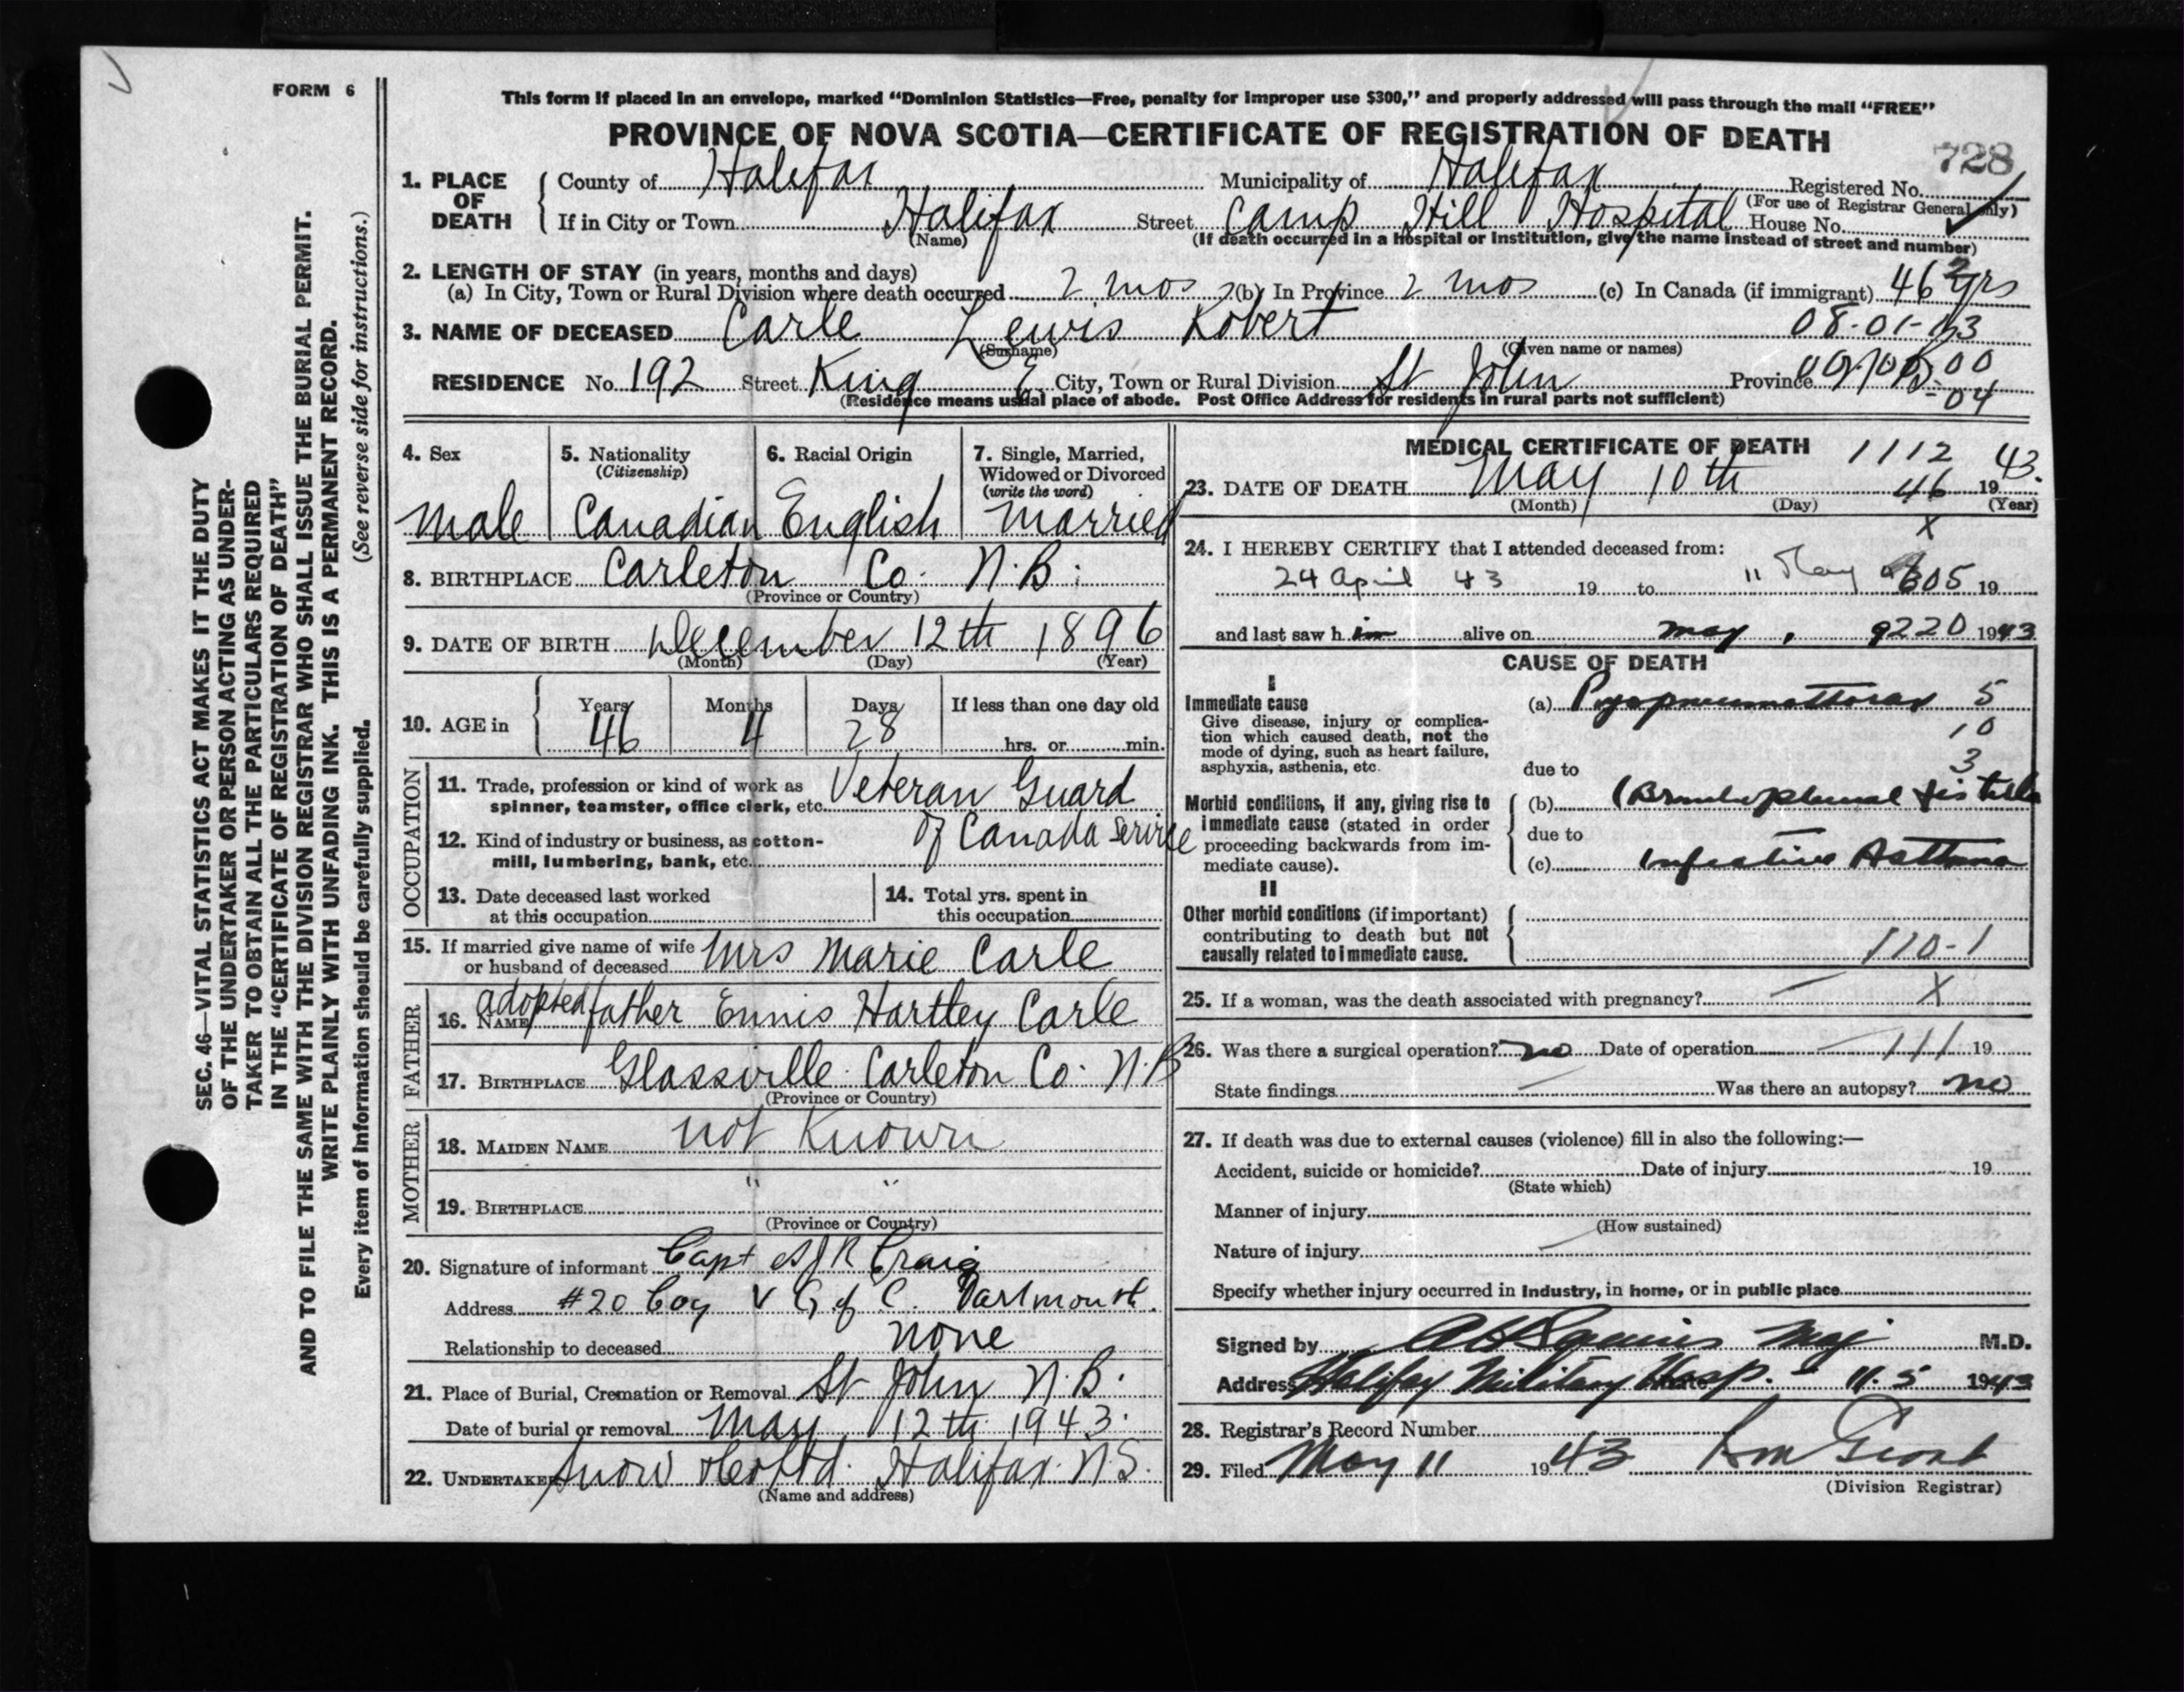 FORM 6
This form if placed in an envelope, marked “Dominion Statistics—Free, penalty for improper use $300,” and properly addressed will pass through the mail “FREE”
PROVINCE OF NOVA SCOTIA—CERTIFICATE OF REGISTRATION OF DEATH
728
1. PLACE OF DEATH
County of Halifax Municipality of Halifax Registered No.
(For use of Registrar General only)
If in City or Town Halifax Street Camp Hill Hospital House No.
(Name) (If death occurred in a hospital or institution, give the name instead of street and number)
2. LENGTH OF STAY (in years, months and days)
(a) In City, Town or Rural Division where death occurred 2 mos (b) In Province 2 mos (c) In Canada (if immigrant) 46 yrs
3. NAME OF DECEASED Carle Lewis Robert
(Surname) (Given name or names)
RESIDENCE No. 192 Street King E City, Town or Rural Division St John Province
(Residence means usual place of abode. Post Office Address for residents in rural parts not sufficient)
04
4. Sex
Male
5. Nationality
(Citizenship)
Canadian
6. Racial Origin
English
7. Single, Married,
Widowed or Divorced
(write the word)
Married
8. BIRTHPLACE Carleton Co. N.B.
(Province or Country)
9. DATE OF BIRTH December 12th 1896
(Month) (Day) (Year)
10. AGE in
Years Months Days If less than one day old
46 4 28 hrs. or min.
OCCUPATION
11. Trade, profession or kind of work as
spinner, teamster, office clerk, etc. Veteran Guard
12. Kind of industry or business, as cotton-
mill, lumbering, bank, etc. of Canada Service
13. Date deceased last worked
at this occupation
14. Total yrs. spent in
this occupation
15. If married give name of wife
or husband of deceased Mrs Marie Carle
FATHER
16. NAME adopted father Ennis Hartley Carle
17. BIRTHPLACE Glassville Carleton Co. N.B
(Province or Country)
MOTHER
18. MAIDEN NAME not Known
19. BIRTHPLACE " "
(Province or Country)
20. Signature of informant Capt A J R Craig
Address #20 Coy V G of C. Dartmouth.
Relationship to deceased none
21. Place of Burial, Cremation or Removal St John N.B.
Date of burial or removal May 12th 1943.
22. UNDERTAKER Snow & Co Ltd. Halifax N.S.
(Name and address)
MEDICAL CERTIFICATE OF DEATH 1112
23. DATE OF DEATH May 10th 46 1943.
(Month) (Day) (Year)
X
24. I HEREBY CERTIFY that I attended deceased from:
24 April 43 19 to " May 605 19
and last saw h im alive on May, 9220 1943
CAUSE OF DEATH
I
Immediate cause
Give disease, injury or complica-
tion which caused death, not the
mode of dying, such as heart failure,
asphyxia, asthenia, etc.
(a) Pyopneumothorax 5
10
3
due to
Morbid conditions, if any, giving rise to
immediate cause (stated in order
proceeding backwards from im-
mediate cause).
(b) (Bronchopleural fistula
due to
(c) Infective Asthma
II
Other morbid conditions (if important)
contributing to death but not
causally related to immediate cause.
110-1
25. If a woman, was the death associated with pregnancy? — X
26. Was there a surgical operation? no Date of operation — 111 19
State findings — Was there an autopsy? no
27. If death was due to external causes (violence) fill in also the following:—
Accident, suicide or homicide? Date of injury 19
(State which)
Manner of injury
(How sustained)
Nature of injury
Specify whether injury occurred in industry, in home, or in public place
Signed by Maj M.D.
Address Halifax Military Hosp. Date 11.5 1943
28. Registrar's Record Number
29. Filed May 11 1943
(Division Registrar)
SEC. 46—VITAL STATISTICS ACT MAKES IT THE DUTY
OF THE UNDERTAKER OR PERSON ACTING AS UNDER-
TAKER TO OBTAIN ALL THE PARTICULARS REQUIRED
IN THE “CERTIFICATE OF REGISTRATION OF DEATH”
AND TO FILE THE SAME WITH THE DIVISION REGISTRAR WHO SHALL ISSUE THE BURIAL PERMIT.
WRITE PLAINLY WITH UNFADING INK. THIS IS A PERMANENT RECORD.
Every item of information should be carefully supplied. (See reverse side for instructions.)